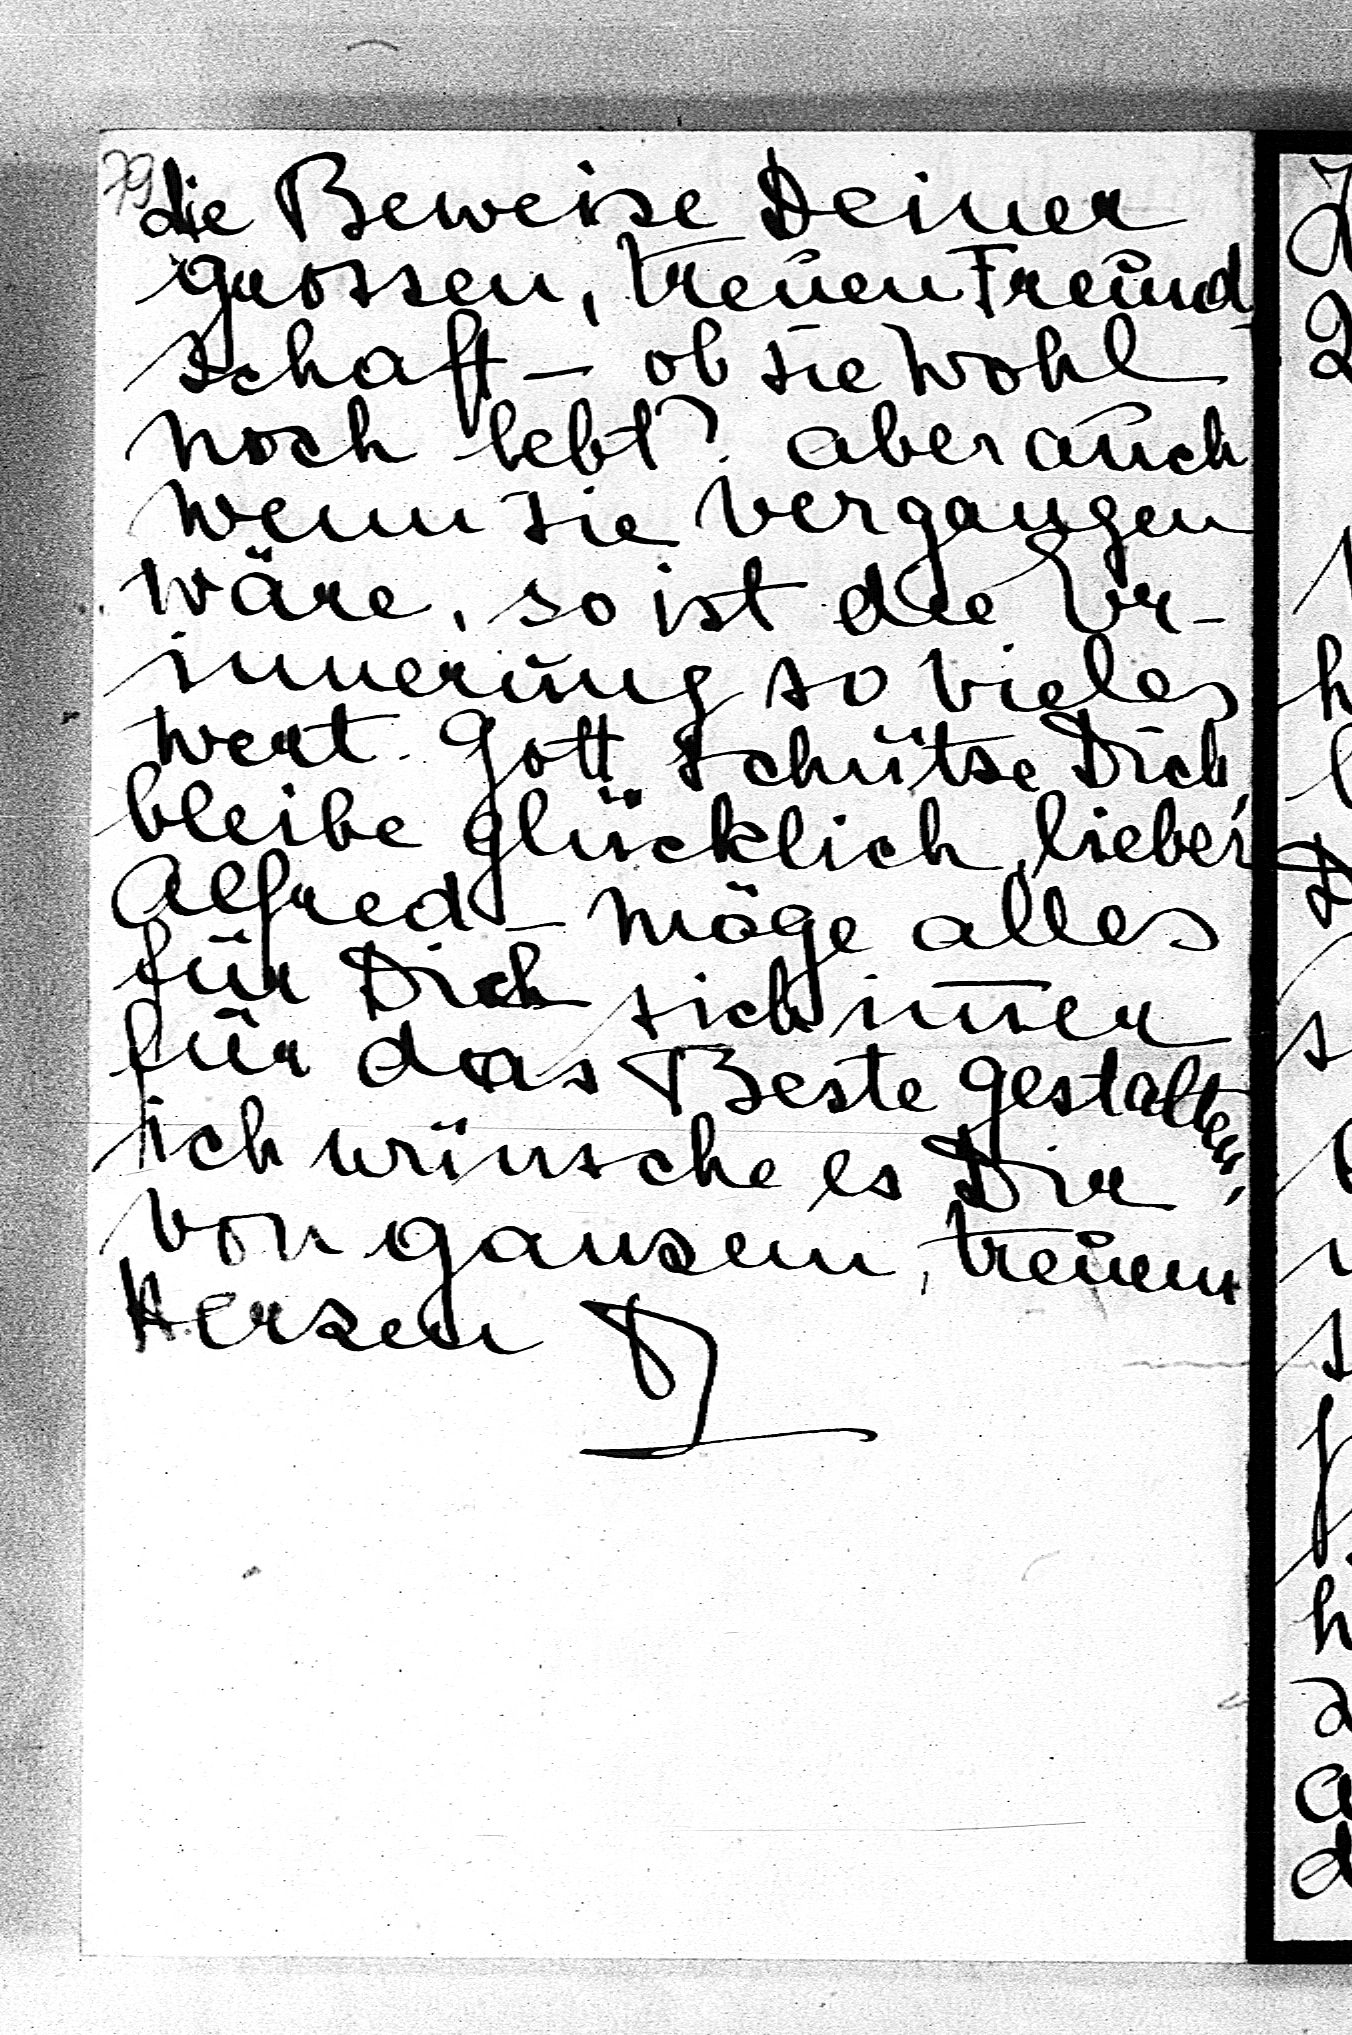 79
die Beweise Deiner
grossen, treuen Freund-
schaft – ob sie wohl
noch lebt? aber auch
wenn sie vergangen
wäre, so ist die Er-
innerung so vieles
wert. Gott schütze Dich,
bleibe glücklich, lieber
Alfred – möge alles
für Dich sich im̅er
für das Beste gestalten,
ich wünsche es Dir
von ganzem, treuem
Herzen